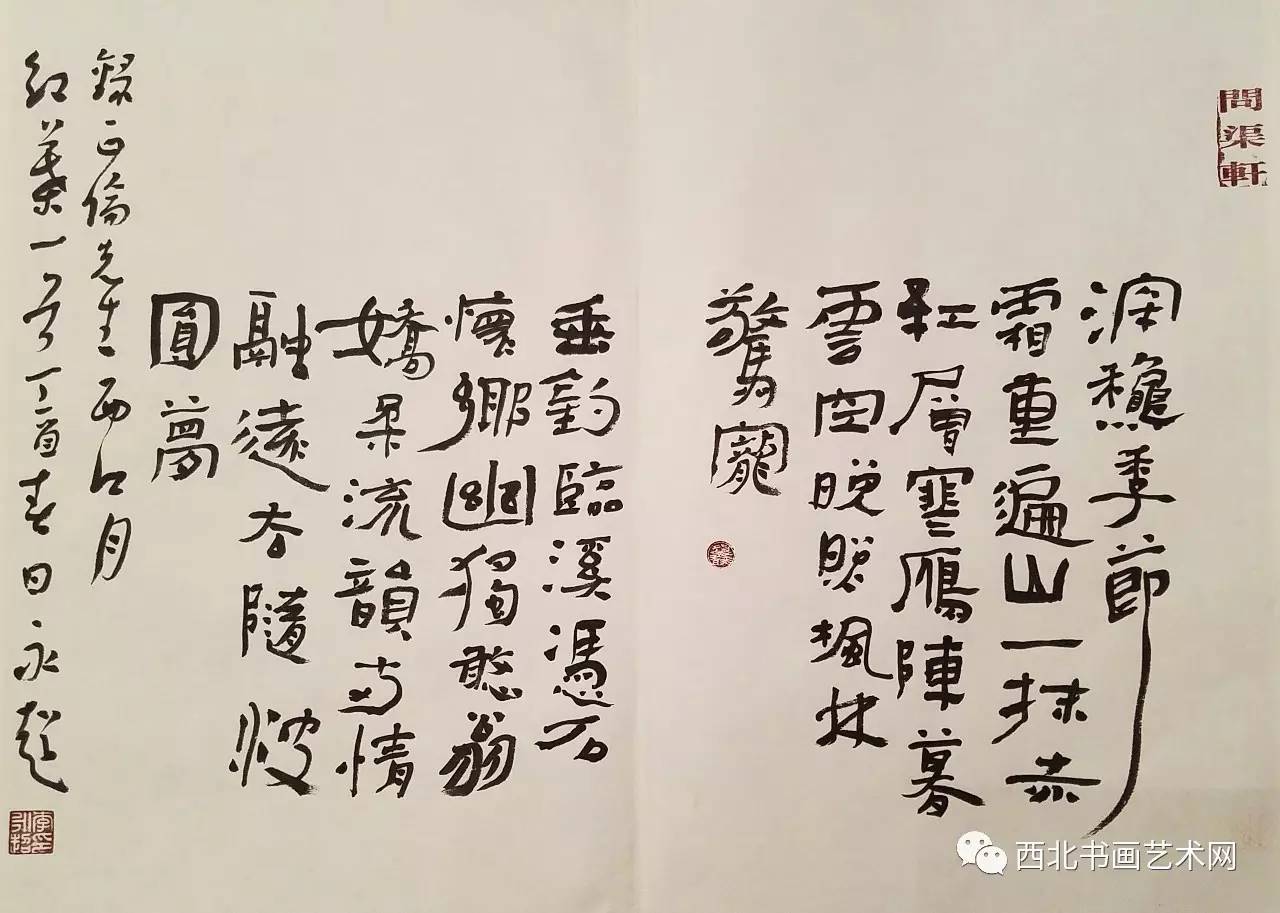 問渠軒
深龝季節
霜重遍山一抹赤
紅層寒鴈陣暮
雲空晚照楓林
驚寵
垂釣臨溪憑石
懷鄉幽獨憨翁
嬌柔流韻與情
融遠去隨波
圓夢
錄正倫先生西江月
紅葉一首丁酉春日永超
西北书画艺术网